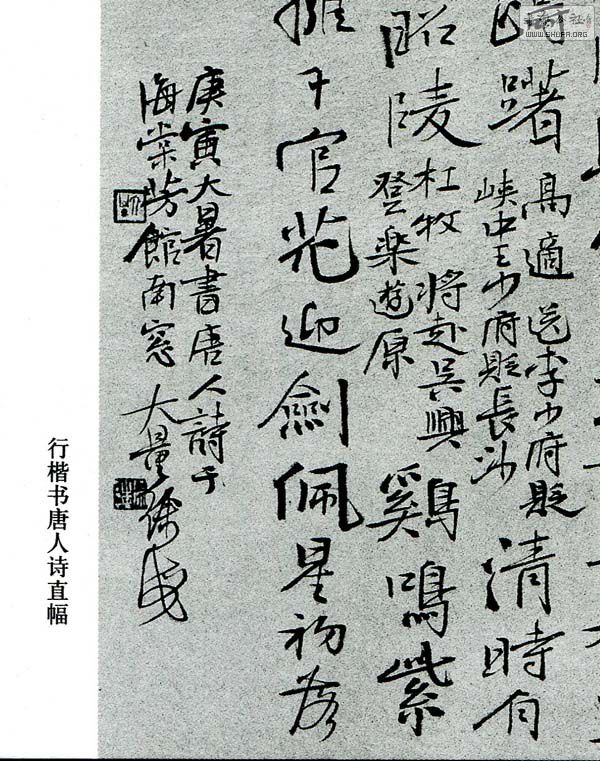 躇
高適 送李少府貶
峡中王少府貶長沙
清時有
昭陵
杜牧 将赴吴興
登楽遊原
鷄鳴紫
擁千官花迎劍佩星初落
庚寅大暑書唐人詩于
海棠芳館南窓 大量
行楷书唐人诗直幅
WWW.SHUFA.ORG